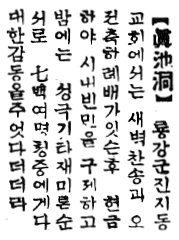 【眞池洞】 룡강군진지동
교회에서는 새벽찬송과 오
전축하례배가잇슨후 현금
하야 시내빈민을 구제하고
밤에는 성극기타재미론순
서로 七百여명청중에게다
대한감동을주엇다더라